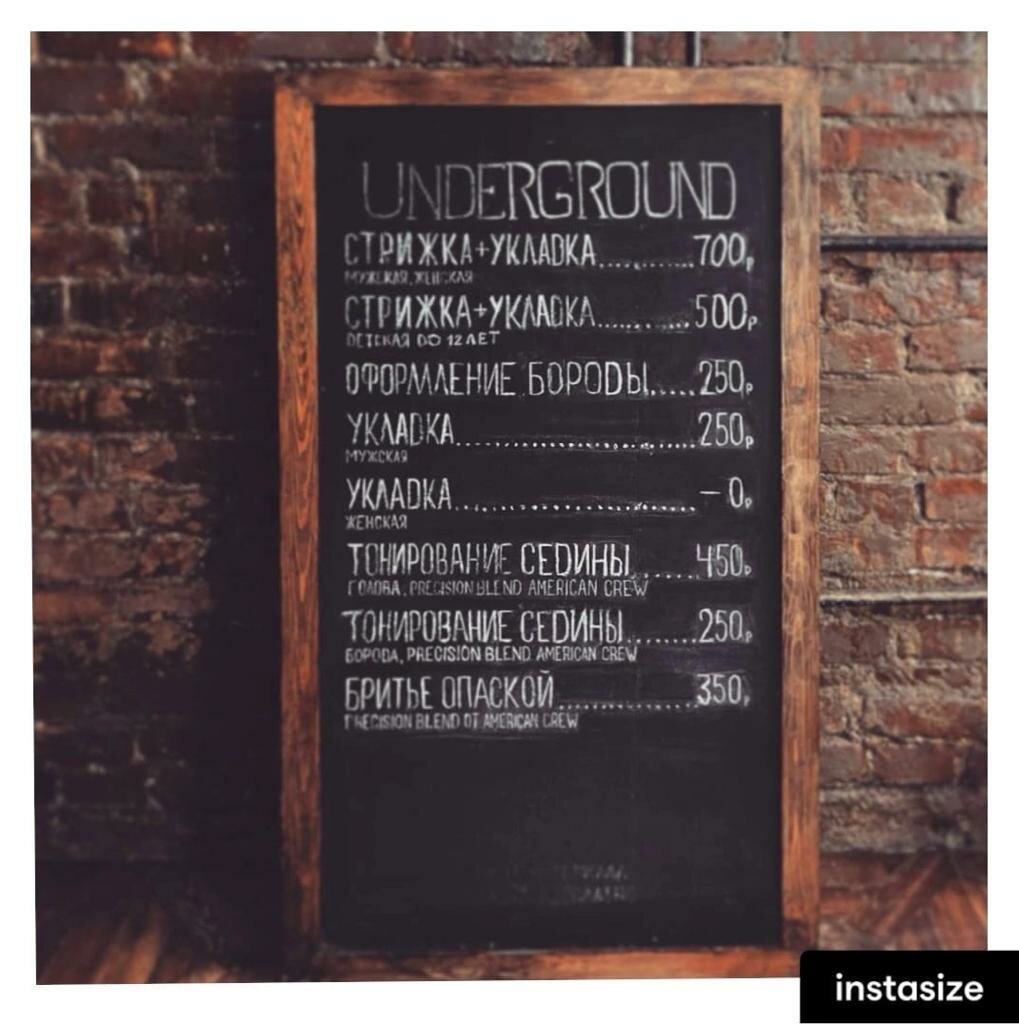 UNDERGROUND
СТРИЖКА+УКЛАДКА..........700р
МУЖСКАЯ, ЖЕНСКАЯ
СТРИЖКА+УКЛАДКА..........500р
ДЕТСКАЯ ДО 12 ЛЕТ
ОФОРМЛЕНИЕ БОРОДЫ.....250р
УКЛАДКА..........................250р
МУЖСКАЯ
УКЛАДКА..........................– 0р
ЖЕНСКАЯ
ТОНИРОВАНИЕ СЕДИНЫ.......450р
ГОЛОВА, PRECISION BLEND AMERICAN CREW
ТОНИРОВАНИЕ СЕДИНЫ.......250р
БОРОДА, PRECISION BLEND AMERICAN CREW
БРИТЬЕ ОПАСКОЙ...............350р
PRECISION BLEND ОТ AMERICAN CREW
instasize